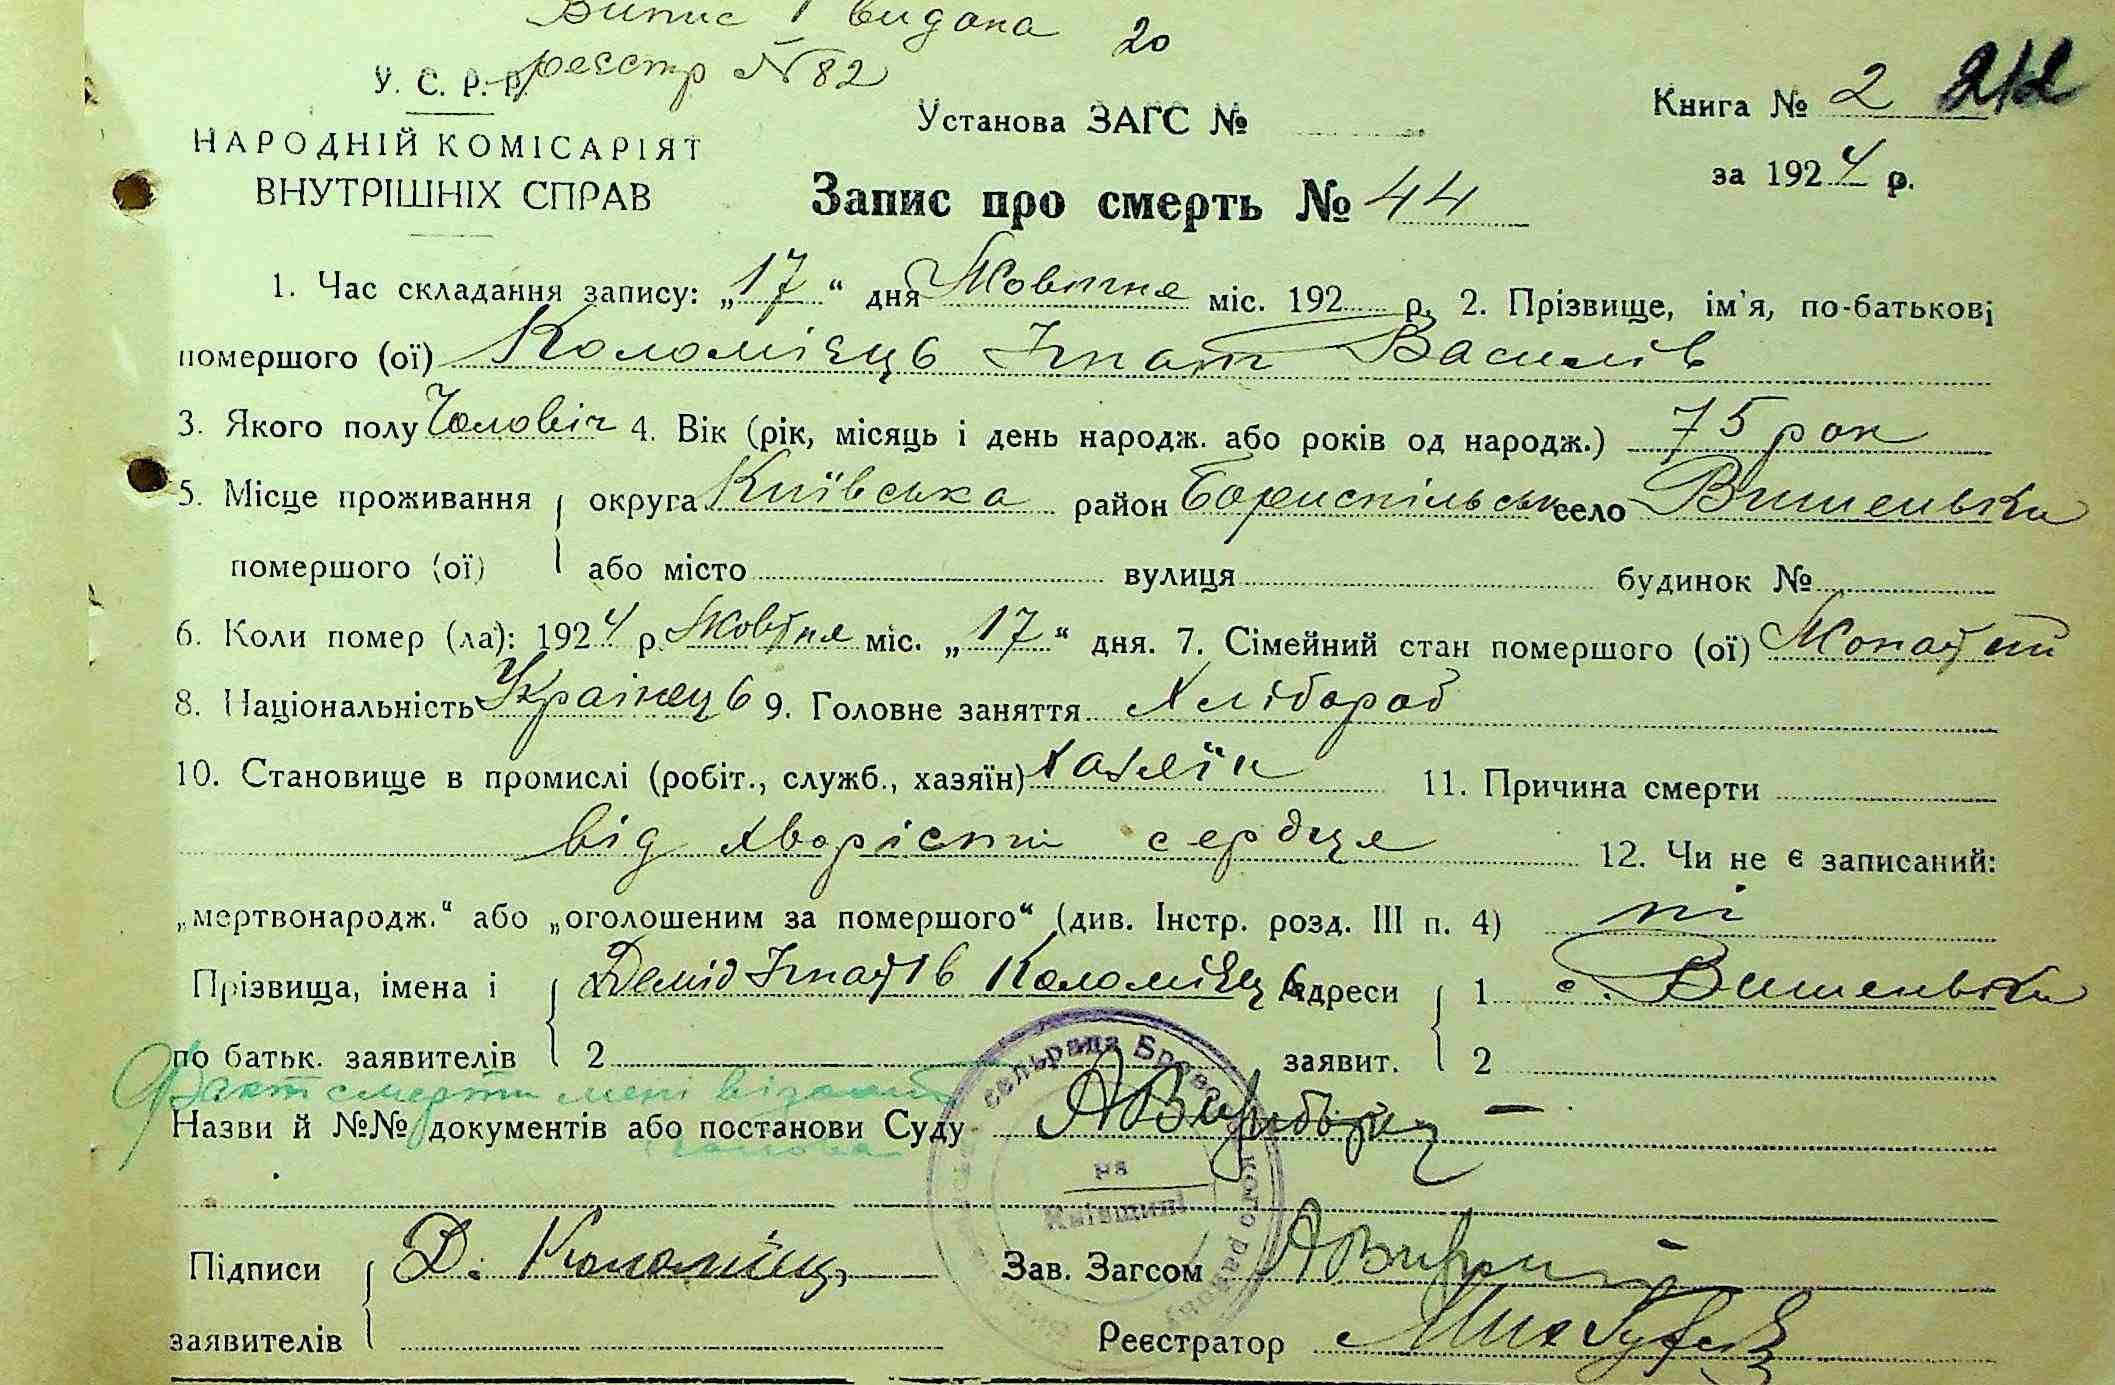 Випис видана 20
реєстр N 82
У. С. Р. Р.
НАРОДНІЙ КОМІСАРІЯТ
ВНУТРІШНІХ СПРАВ
Установа ЗАГС №
Книга № 2 212
за 1924 р.
Запис про смерть № 44
1. Час складання запису: „17“ дня Жовтня міс. 192 р. 2. Прізвище, ім'я, по-батькові
помершого (ої) Коломієць Ігнат Василів
3. Якого полу Чоловіч 4. Вік (рік, місяць і день народж. або років од народж.) 75 рок
5. Місце проживання округа Київська район Бориспільськ село Вишеньки
помершого (ої) або місто вулиця будинок №
6. Коли помер (ла): 1924 р. Жовтня міс. „17“ дня. 7. Сімейний стан помершого (ої) Жонатий
8. Національність Українець 9. Головне заняття Хлібороб
10. Становище в промислі (робіт., служб., хазяїн) Хазяїн 11. Причина смерти
від хворісти сердця 12. Чи не є записаний:
„мертвонародж.“ або „оголошеним за помершого“ (див. Інстр. розд. III п. 4) ні
Прізвища, імена і Демід Ігнатів Коломієць Адреси 1 с. Вишеньки
по батьк. заявителів 2 заявит. 2
Факт смерти мені
Назви й №№ документів або постанови Суду
голова
сельрада
на
Київщині
Підписи Д. Коломієць Зав. Загсом
заявителів Реєстратор